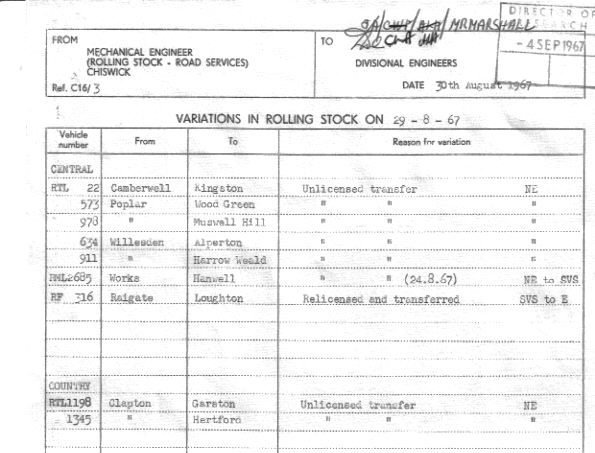 DIRECTOR OF
RESEARCH
- 4 SEP 1967
MR MARSHALL
FROM
MECHANICAL ENGINEER
(ROLLING STOCK - ROAD SERVICES)
CHISWICK
Ref. C16/3
TO
DIVISIONAL ENGINEERS
DATE 30th August 1967
VARIATIONS IN ROLLING STOCK ON 29 - 8 - 67
Vehicle number From To Reason for variation
CENTRAL
RTL 22 Camberwell Kingston Unlicensed transfer NE
573 Poplar Wood Green " " "
978 " Muswell Hill " " "
634 Willesden Alperton " " "
911 " Harrow Weald " " "
RML2685 Works Hanwell " " (24.8.67) NE to SVS
RF 316 Reigate Loughton Relicensed and transferred SVS to E
COUNTRY
RTL1198 Clapton Garston Unlicensed transfer NE
1345 " Hertford " " "